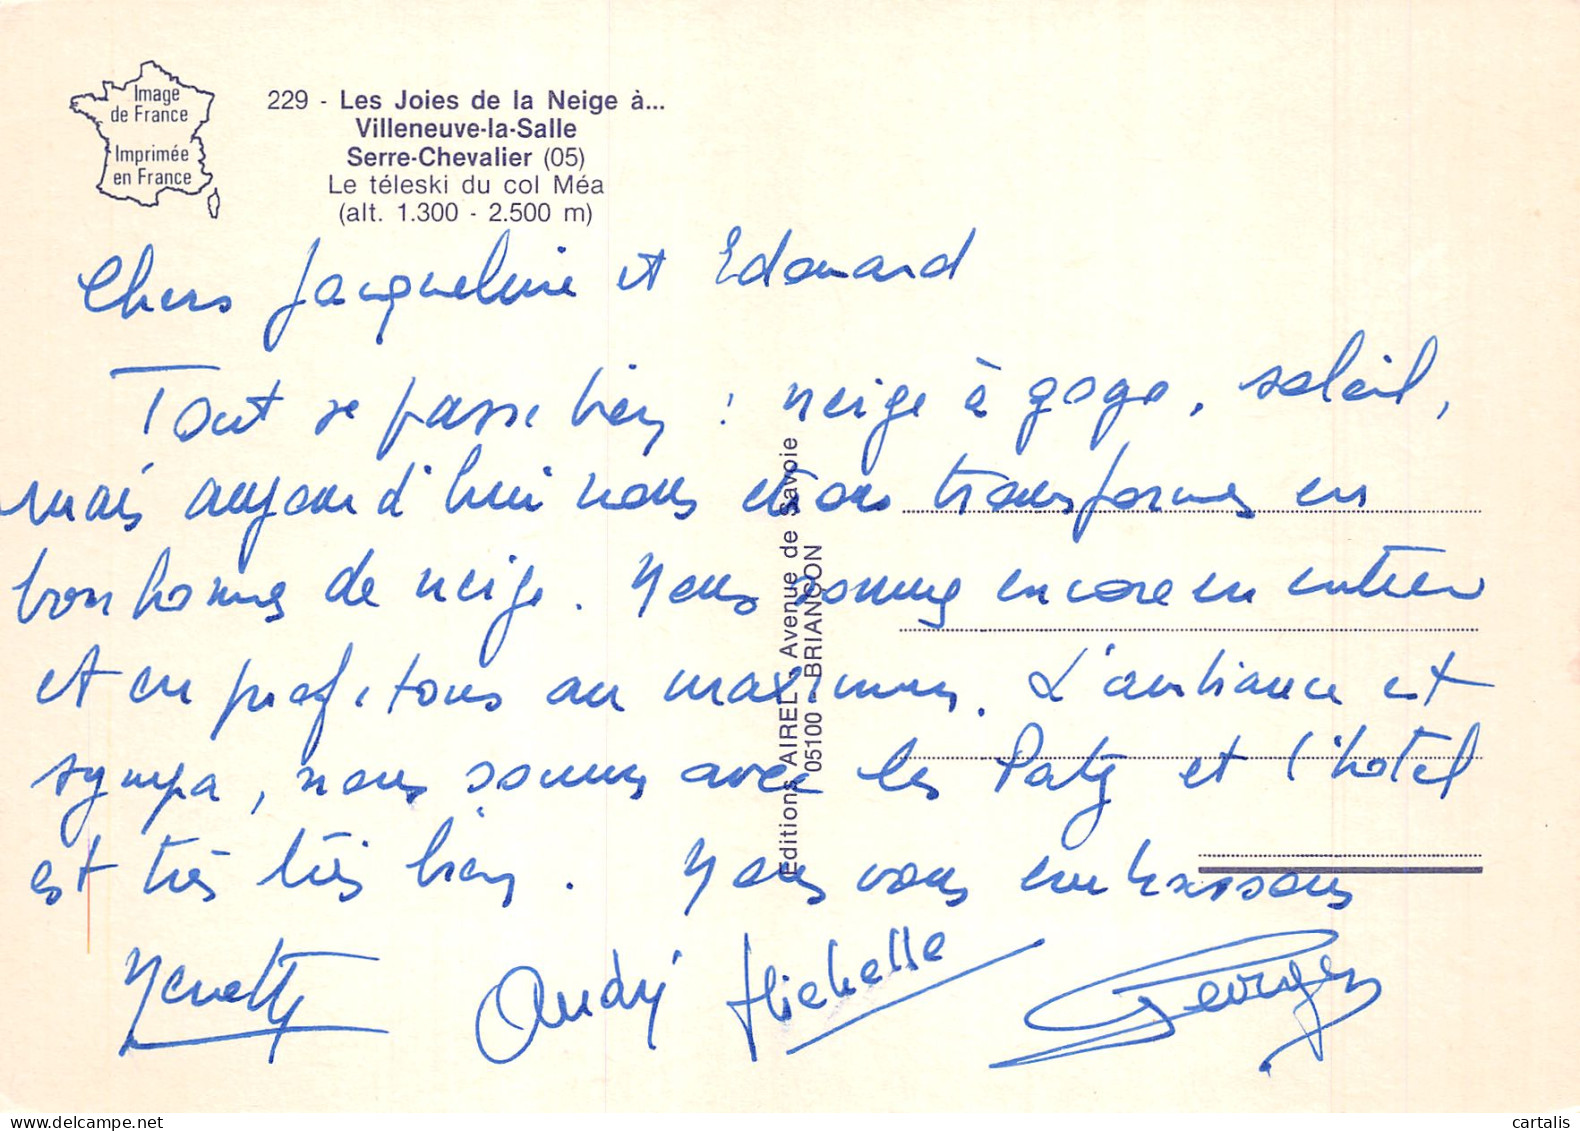 Image
de France
Imprimée
en France
229 - Les Joies de la Neige à...
Villeneuve-la-Salle
Serre-Chevalier (05)
Le téleski du col Méa
(alt. 1.300 - 2.500 m)
Chers Jacqueline et Edouard
Tout se passe bien : neige à gogo, soleil,
mais aujourd'hui nous étions transformés en
bonhommes de neige. Nous sommes encore en entier
et en profitons au maximum. L'ambiance est
sympa, nous sommes avec les Paty et l'hôtel
est très très bien. Nous vous embrassons
Nenetty André Michelle Georges
Éditions AIREL - Avenue de Savoie
05100 - BRIANÇON
cartalis